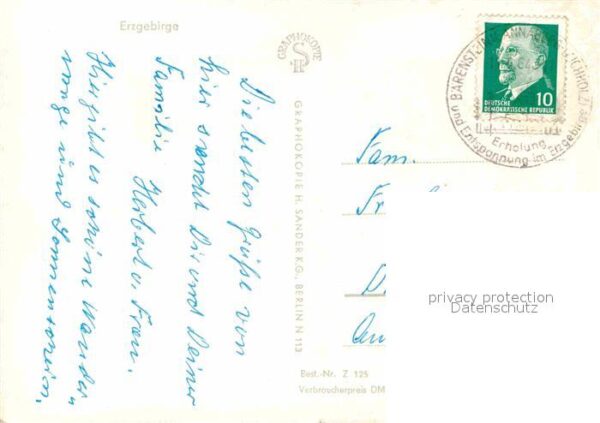 Erzgebirge
Die besten Grüße von
hier sendet Dir und Deiner
Familie Herbert u. Frau.
Hier gibt es schöne Wander-
wege und Sonnenschein.
GRAPHOKOPIE
GRAPHOKOPIE H. SANDER K.G., BERLIN N 113
DEUTSCHE
DEMOKRATISCHE REPUBLIK
10
BÄRENSTEIN
Erholung
und Entspannung im Erzgebirge
Fam.
privacy protection
Datenschutz
Best.-Nr. Z 125
Verbraucherpreis DM